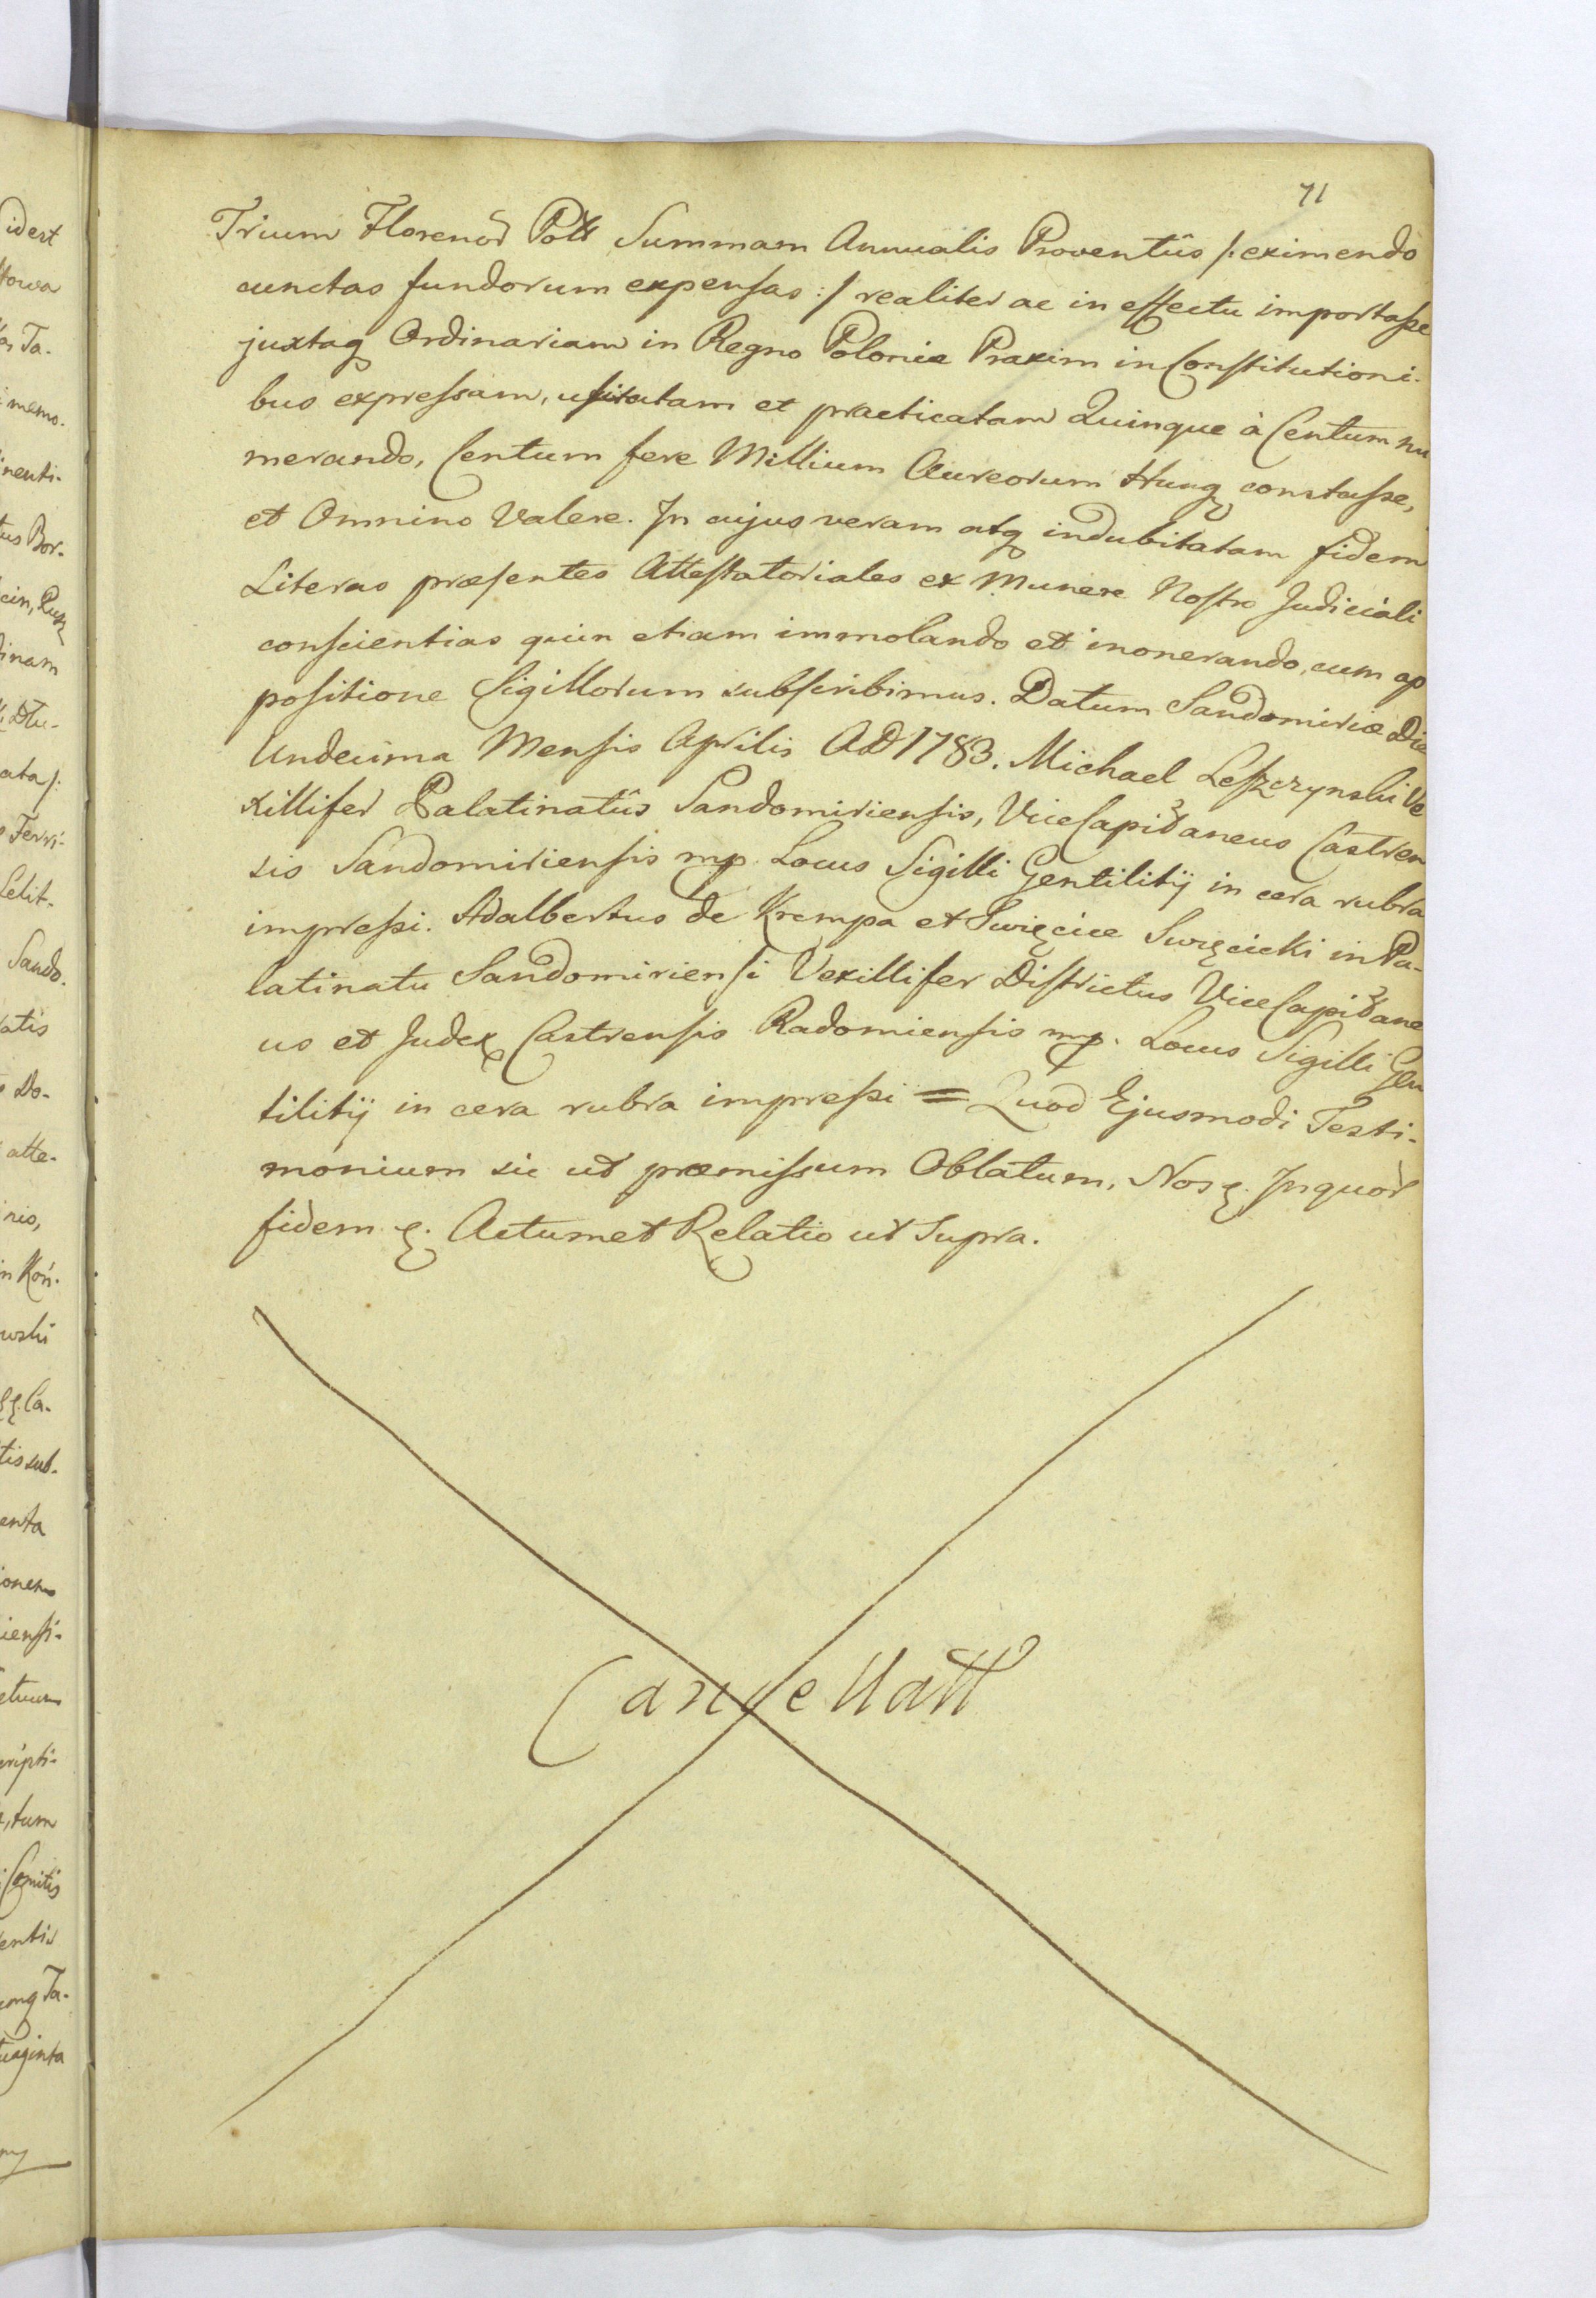 71
Trium Florenor Poll Summam Annualis Proventûs /: eximendo
cunctas fundorum expensas :/ realiter ac in effectu importasse
juxtaq Ordinariam in Regno Poloniæ Praxim in Constitutioni-
bus expressam, usitatam et practicatam Quinque à Centum nu
merando, Centum fere Millium Aureorum Hung constasse,
et Omnino Valere. In cujus veram atq indubitatam fidem
Literas præsentes Attestatoriales ex Munere Nostro Judiciali
conscientias quin etiam immolando et inonerando, cum ap
positione Sigillorum subscribimus. Datum Sandomiriæ Die
Undecima Mensis Aprilis AD 1783. Michael Leszczynski Ve
xillifer Palatinatûs Sandomiriensis, ViceCapitaneus Castren
sis Sandomiriensis mp. Locus Sigilli Gentilitij in cera rubra
impressi. Adalbertus de Krempa et Swięcice Swięcicki in Pa-
latinatu Sandomiriensi Vexillifer Districtus ViceCapitane
us et Judex Castrensis Radomiensis mp. Locus Sigilli Gen
tilitij in cera rubra impressi = Quod Ejusmodi Testi-
monium sic ut præmissum Oblatum, Nos. Inquor
fidem. Actum et Relatio ut Supra.
Cancellatt